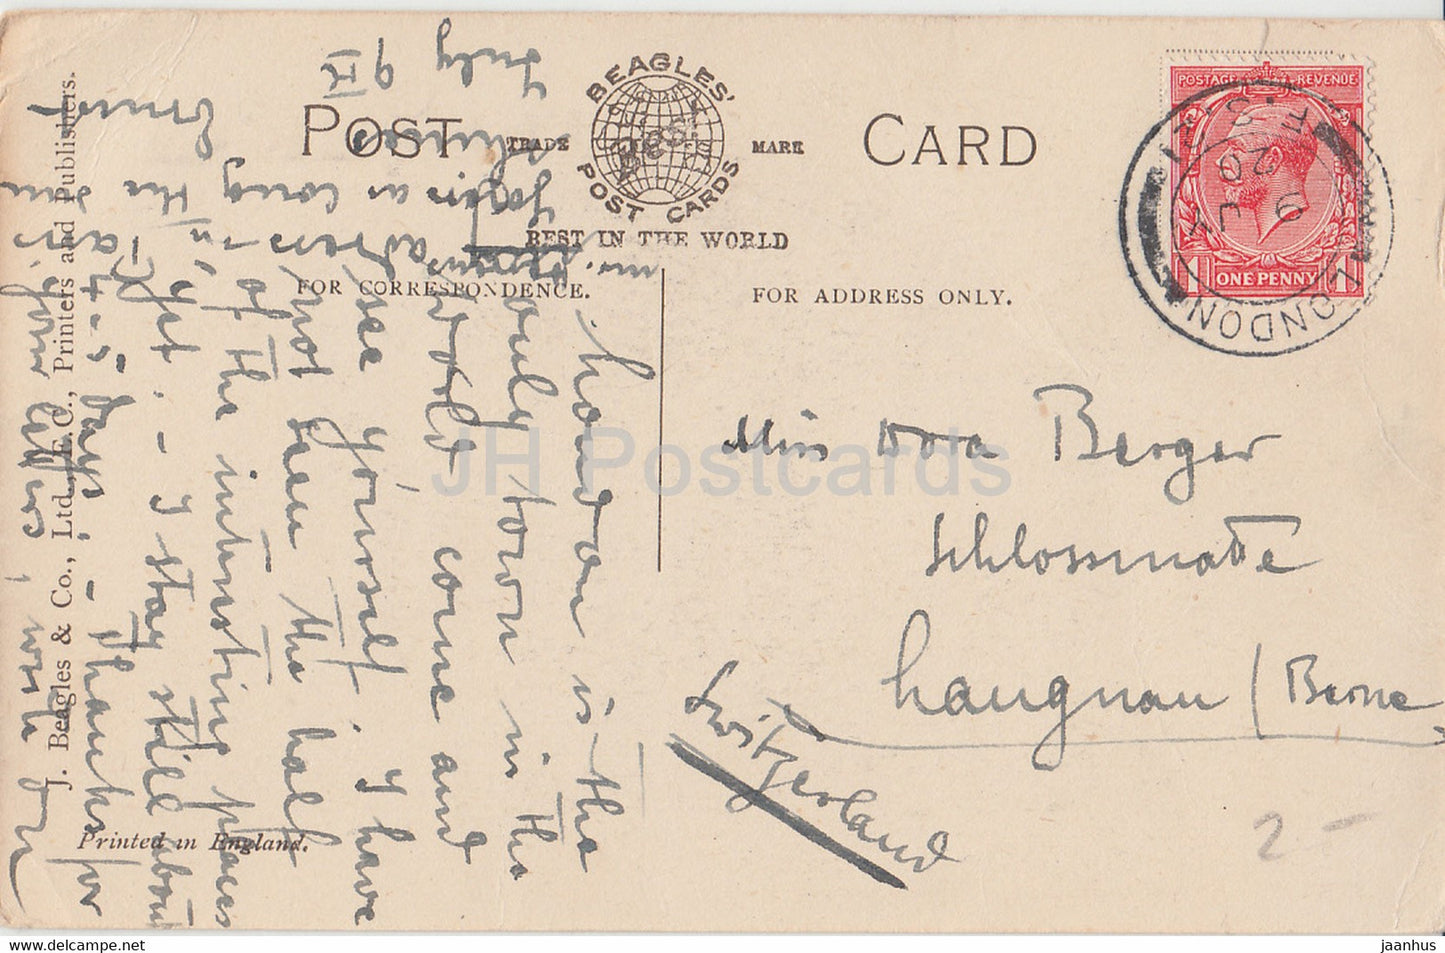 POST CARD
BEAGLES'
POST CARDS
TRADE MARK
BEST IN THE WORLD
FOR CORRESPONDENCE.
FOR ADDRESS ONLY.
POSTAGE REVENUE
ONE PENNY
LONDON
9 JY
20
July 9th
London is the
only town in the
world come and
see yourself. I have
not seen the half
of the interesting places
yet. - I stay still about
4-5 days. - Thanks for
your letters, write
Miss Dora Berger
Schlossmatte
Langnau (Berne
Switzerland
2-
J. Beagles & Co., Ltd., E.C., Printers and Publishers.
Printed in England.
JH Postcards
www.delcampe.net
jaanhus